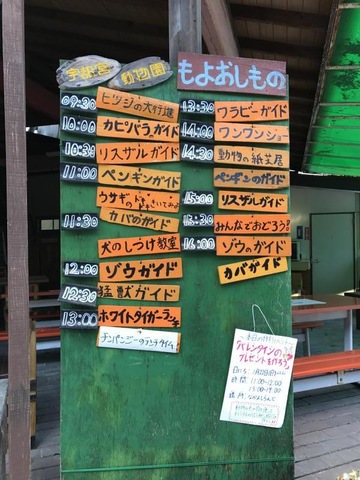 宇都宮動物園
もよおしもの
09:30 ヒツジの大行進
10:00 カピバラガイド
10:30 リスザルガイド
11:00 ペンギンガイド
カバのガイド
11:30
犬のしつけ教室
12:00 ゾウガイド
12:30 猛獣ガイド
13:00 ホワイトタイガーランチ
チンパンジーのランチタイム
13:30 ワラビーガイド
14:00 ワンワンショー
14:30 動物の紙芝居
ペンギンのガイド
15:00 リスザルガイド
15:30 みんなでおどろう!
16:00 ゾウのガイド
カバガイド
バレンタインの
プレゼントを作ろう
時間 11:00~12:00
場所